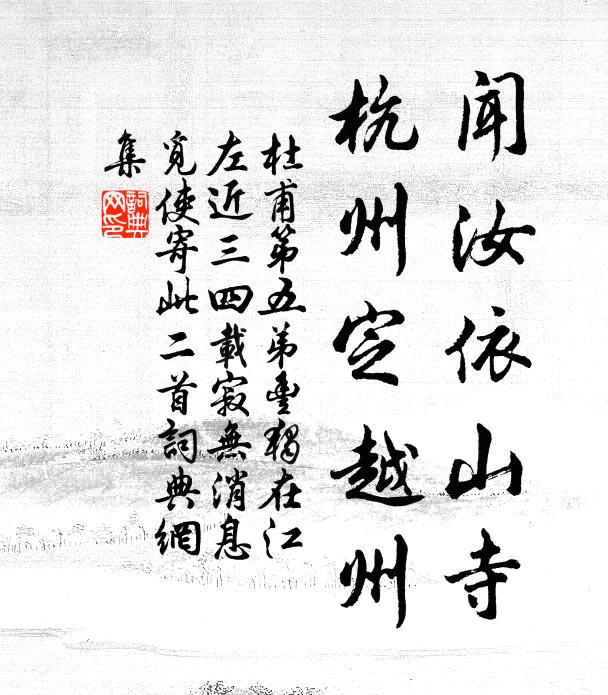 闻汝依山寺
杭州定越州
杜甫第五弟豊獨在江
左近三四載寂無消息
覓使寄此二首詞典網
集
詞典
网印